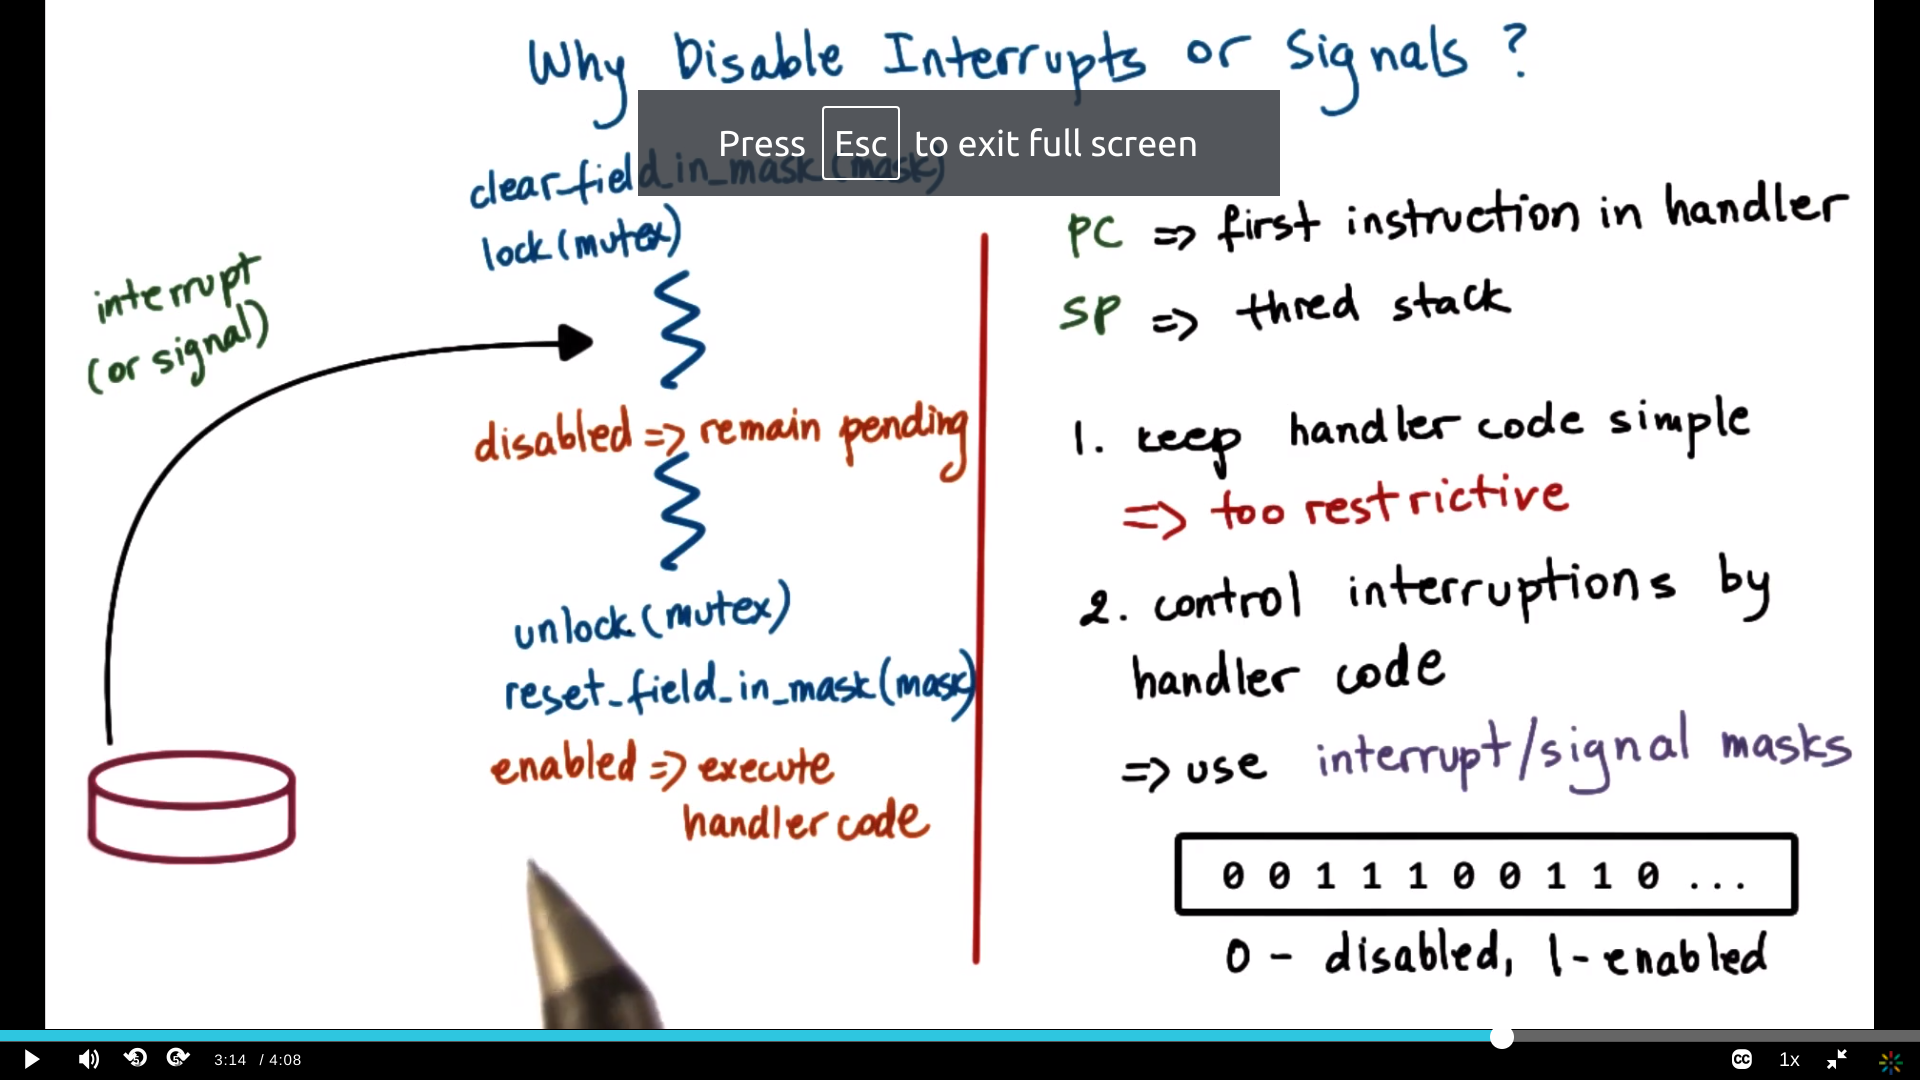 Why Disable Interrupts or Signals ?
Press Esc to exit full screen
clear_field_in_mask(mask)
lock(mutex)
interrupt
(or signal)
disabled => remain pending
unlock(mutex)
reset_field_in_mask(mask)
enabled => execute
handler code
PC => first instruction in handler
SP => thred stack
1. keep handler code simple
=> too restrictive
2. control interruptions by
handler code
=> use interrupt/signal masks
0 0 1 1 1 0 0 1 1 0 ...
0 - disabled, 1 - enabled
5 5 3:14 / 4:08 CC 1x